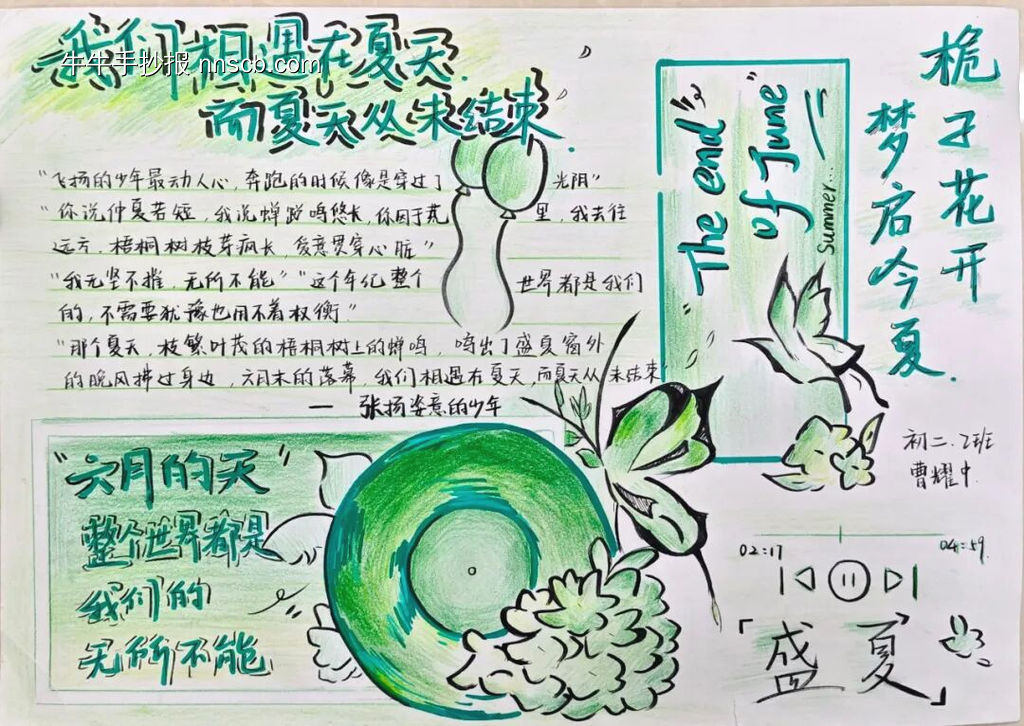 我们相遇在夏天.
而夏天从未结束.
牛牛手抄报 nnscb.com
"飞扬的少年最动人心,奔跑的时候像是穿过了光阴"
"你说仲夏苦短,我说蝉鸣悠长,你困于荒里,我去往
远方.梧桐树枝芽疯长,爱意贯穿心脏"
"我无坚不摧,无所不能""这个年纪整个世界都是我们
的,不需要犹豫也用不着权衡."
"那个夏天,枝繁叶茂的梧桐树上的蝉鸣,鸣出了盛夏窗外
的晚风拂过身边,六月末的落幕,我们相遇在夏天,而夏天从未结束
— 张扬姿意的少年
"The end"
of "June"
Summer...
栀子花开
梦启今夏.
初二.2班
曹耀中.
"六月的天"
整个世界都是
我们的
无所不能
02:17
04:59
「盛夏」